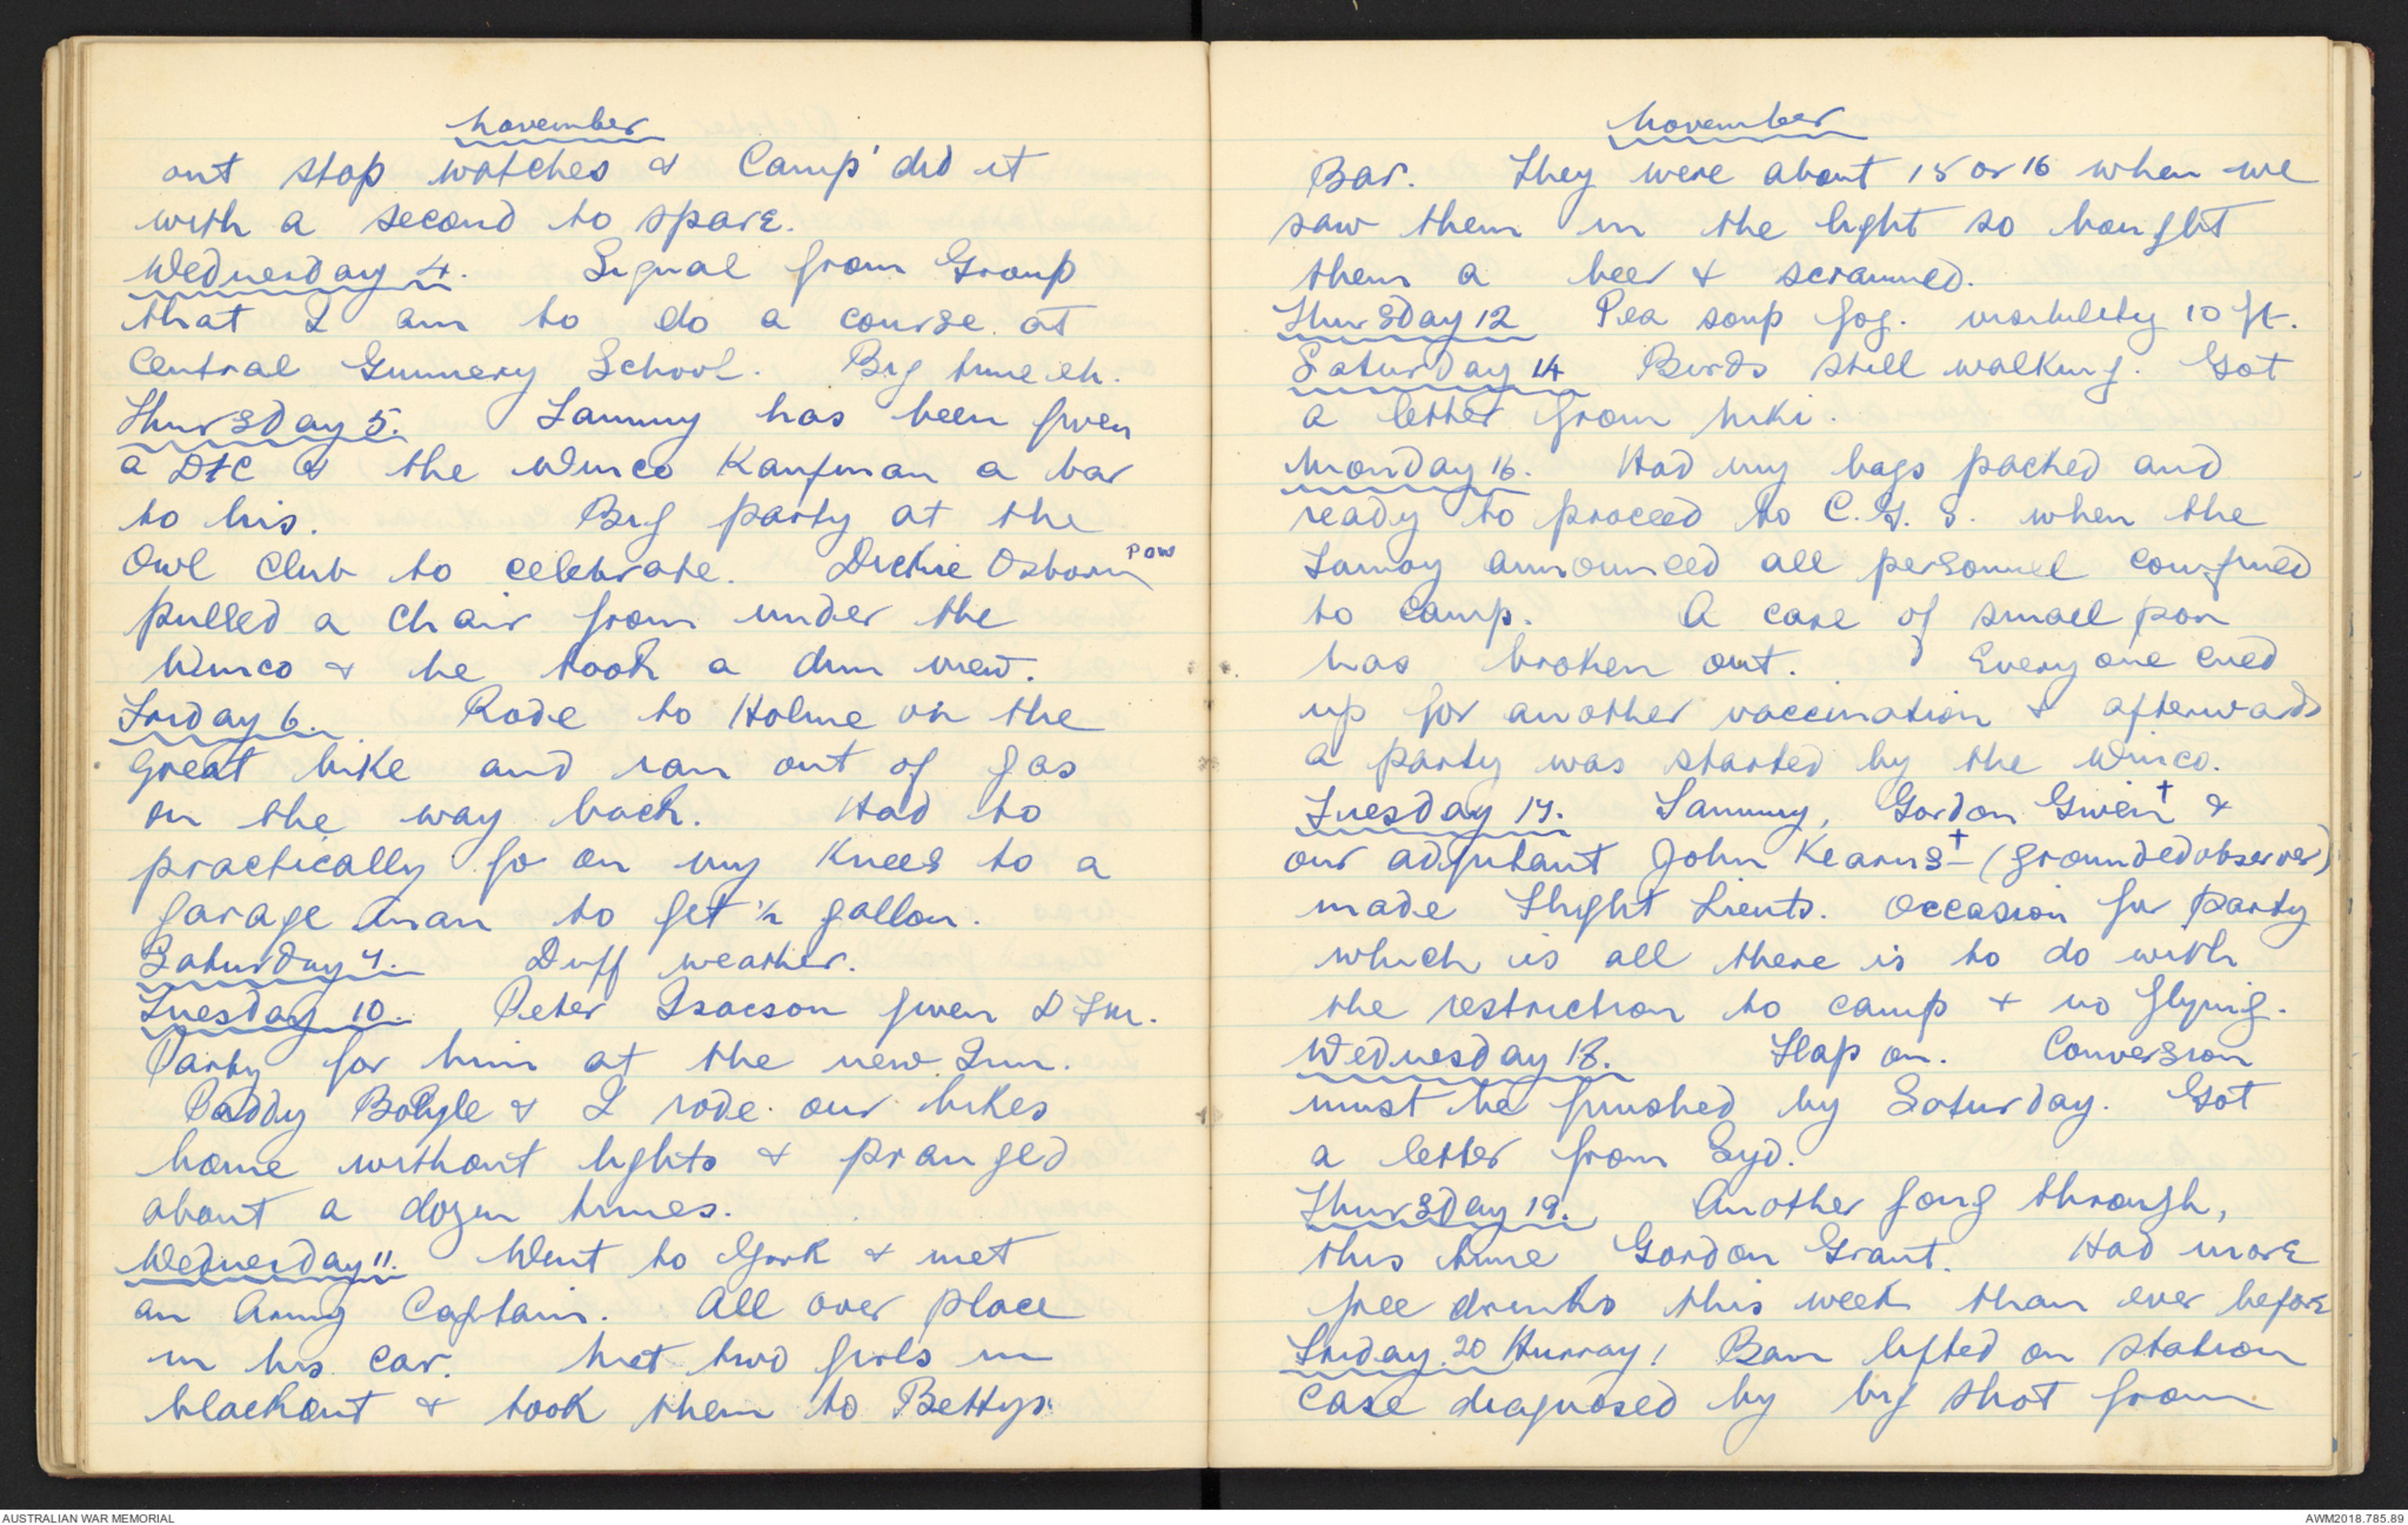 November
out stop watches & Camp' did it
with a second to spare.
Wednesday 4. Signal from Group
that I am to do a course at
Central Gunnery School. Big time eh.
Thursday 5. Sammy has been given
a DFC & the Winco Kaufman a bar
to his. Big party at the
Owl Club to celebrate. Dickie Osborn POW
pulled a chair from under the
Winco & he took a dim view.
Friday 6. Rode to Holme on the
great bike and ran out of gas
on the way back. Had to
practically go on my knees to a
garage man to get ½ gallon.
Saturday 7. Duff weather.
Tuesday 10. Peter Isacson given DFM.
Party for him at the new Inn.
Paddy Boyle & I rode our bikes
home without lights & pranged
about a dozen times.
Wednesday 11. Went to York & met
an Army Captain. All over place
in his car. Met two girls in
blackout & took them to Bettys
November
Bar. They were about 15 or 16 when we
saw them in the light so bought
them a beer & scrammed.
Thursday 12 Pea soup fog. visibility 10 ft.
Saturday 14 Birds still walking. Got
a letter from Niki.
Monday 16. Had my bags packed and
ready to proceed to C.G.S. when the
Tannoy announced all personnel confined
to camp. A case of small pox
has broken out. Everyone cued
up for another vaccination & afterwards
a party was started by the Winco.
Tuesday 17. Sammy, Gordon Gwen† &
our adjutant John Kearns† (grounded observer)
made Flight Lieuts. Occasion for party
which is all there is to do with
the restriction to camp & no flying.
Wednesday 18. Flap on. Conversion
must be finished by Saturday. Got
a letter from Syd.
Thursday 19. Another gong through,
this time Gordon Grant. Had more
free drinks this week than ever before
Friday 20 Hurray! Ban lifted on station
case diagnosed by big shot from
AUSTRALIAN WAR MEMORIAL
AWM2018.785.89